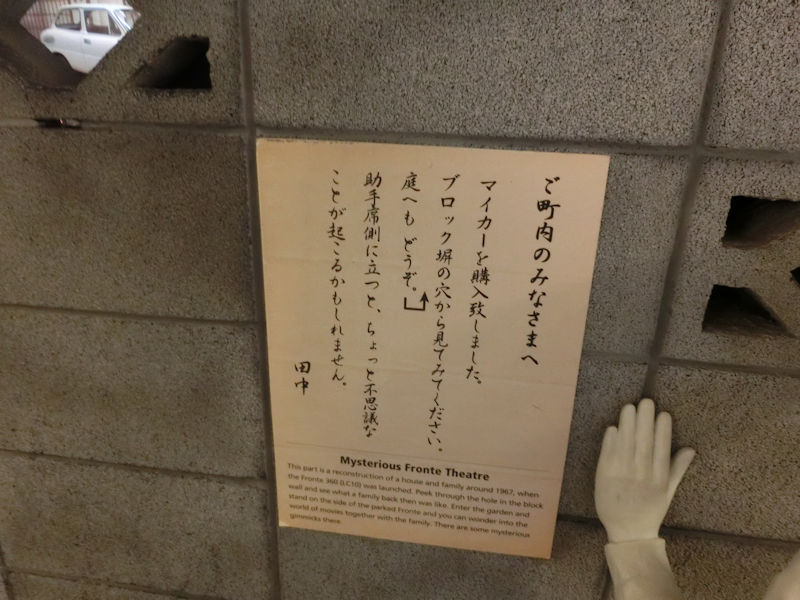 ご町内のみなさまへ
マイカーを購入致しました。
ブロック塀の穴から見てみてください。
庭へも どうぞ。
助手席側に立つと、ちょっと不思議な
ことが起こるかもしれません。
田中
Mysterious Fronte Theatre
This part is a reconstruction of a house and family around 1967, when
the Fronte 360 (LC10) was launched. Peek through the hole in the block
wall and see what a family back then was like. Enter the garden and
stand on the side of the parked Fronte and you can wonder into the
world of movies together with the family. There are some mysterious
gimmicks there.